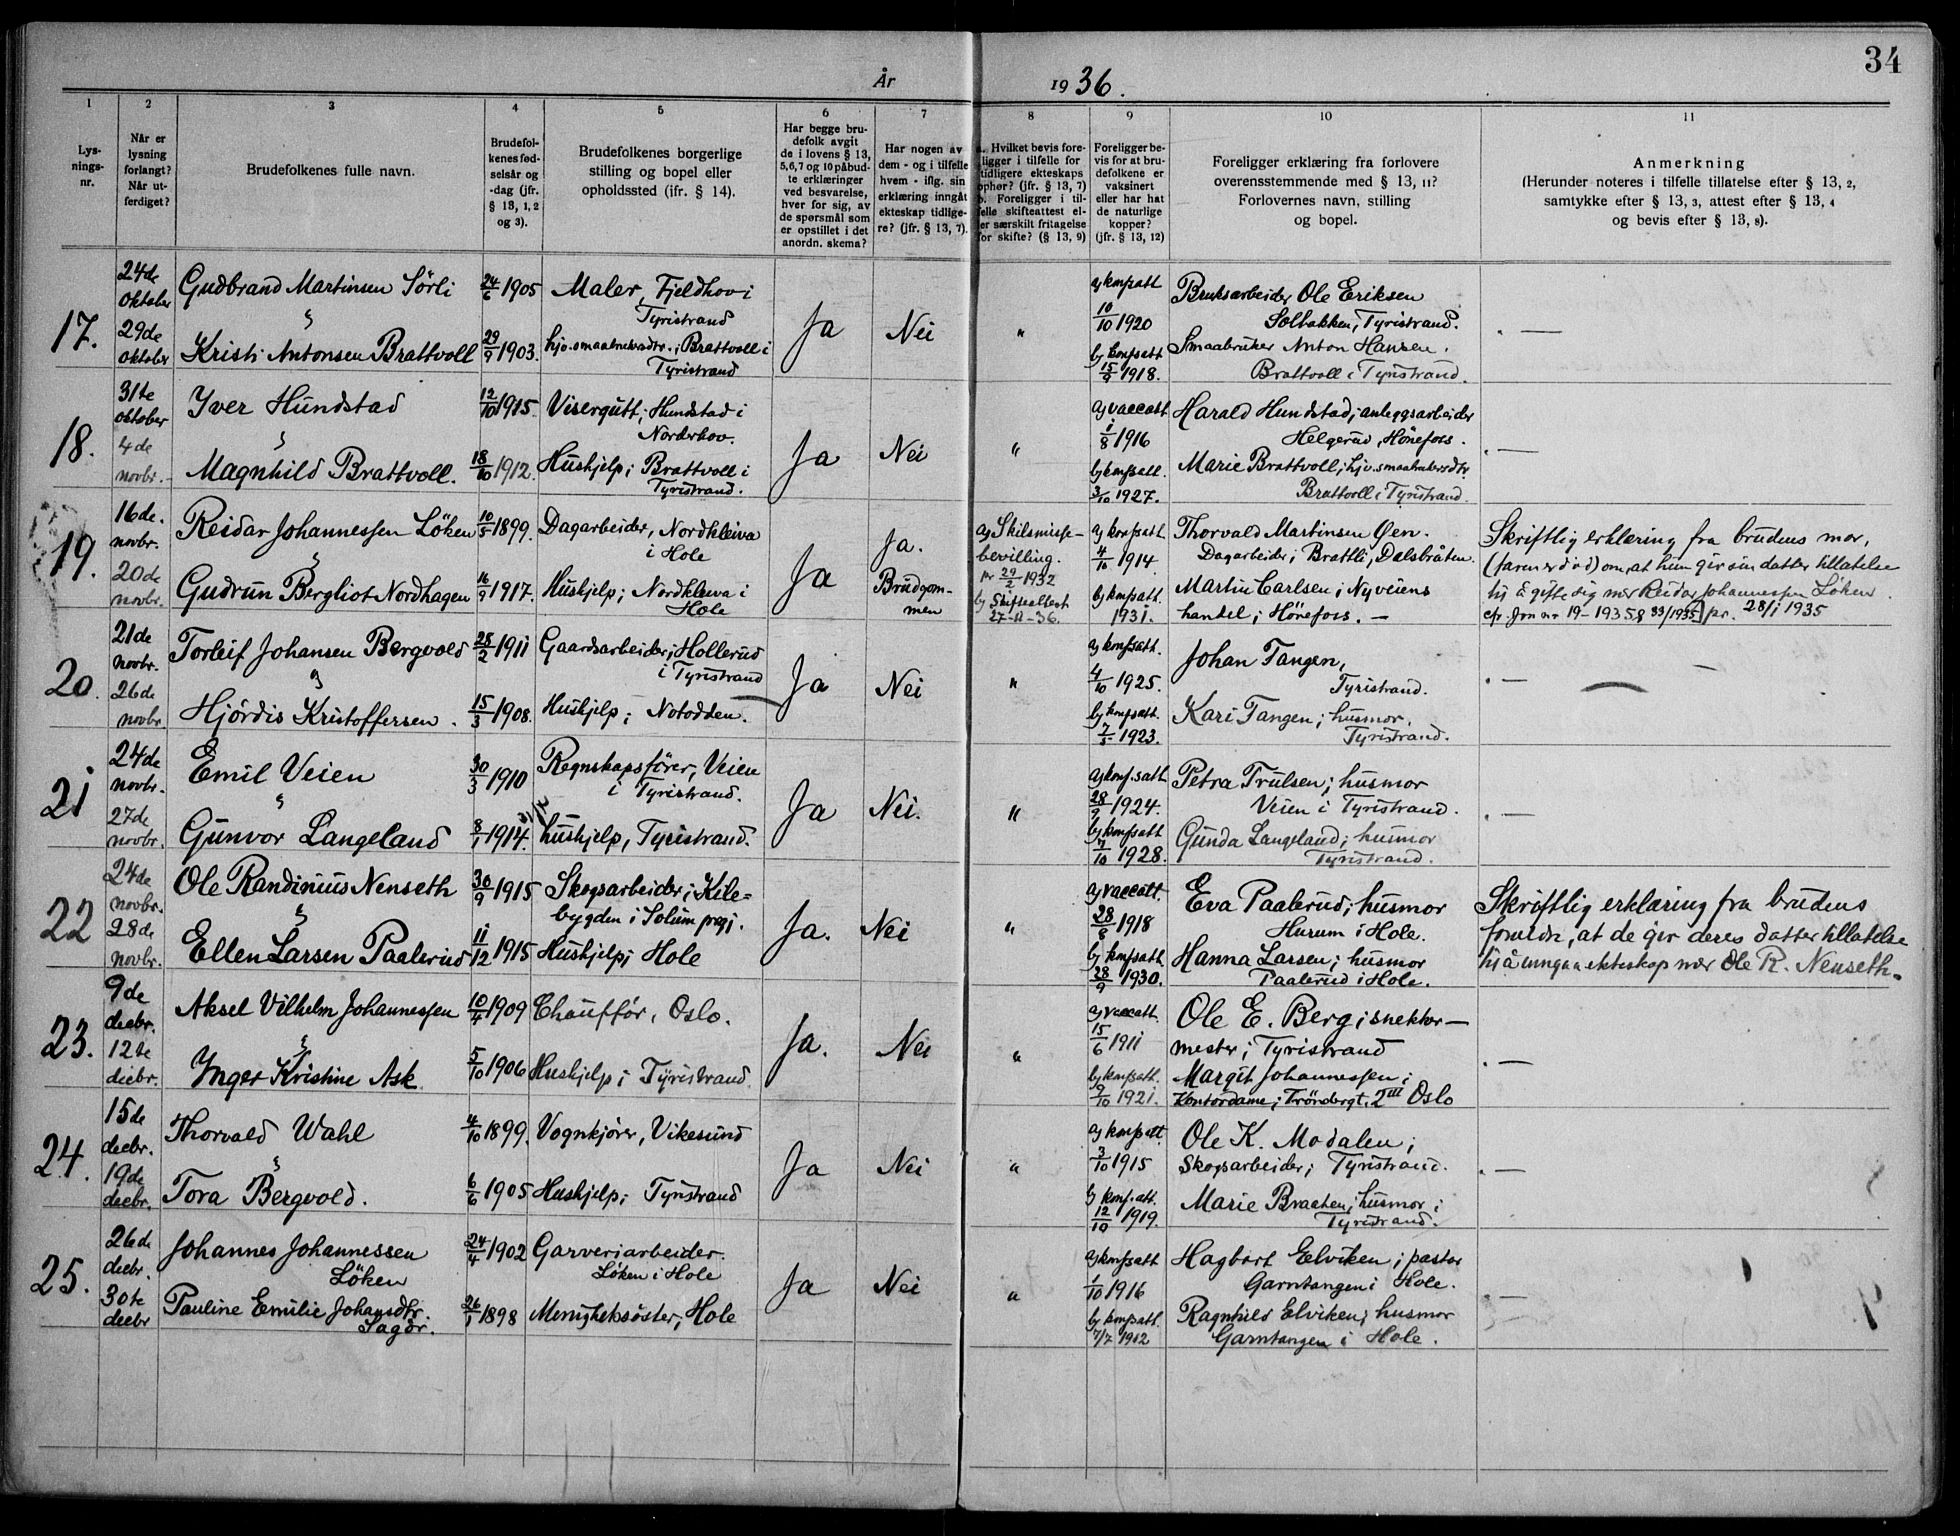 34
År 1936.
1
Lys-
nings-
nr.
2
Når er
lysning
forlangt?
Når ut-
ferdiget?
3
Brudefolkenes fulle navn.
4
Brudefol-
kenes fød-
selsår og
-dag (jfr.
§ 13, 1, 2
og 3).
5
Brudefolkenes borgerlige
stilling og bopel eller
opholdssted (ifr. § 14).
6
Har begge bru-
defolk avgit
de i lovens § 13,
5,6,7 og 10 påbud-
te erklæringer
ved besvarelse,
hver for sig, av
de spørsmål som
er opstillet i det
anordn. skema?
7
Har nogen av
dem - og i tilfelle
hvem - iflg. sin
erklæring inngåt
ekteskap tidlige-
re? (jfr. § 13, 7).
8
a. Hvilket bevis fore-
ligger i tilfelle for
tidligere ekteskaps
ophør? (jfr. § 13, 7)
b. Foreligger i til-
felle skifteattest el-
ler særskilt fritagelse
for skifte? (§ 13, 9)
9
Foreligger be-
vis for at bru-
defolkene er
vaksinert
eller har hat
de naturlige
kopper?
(jfr. § 13, 12)
10
Foreligger erklæring fra forlovere
overensstemmende med § 13, 11?
Forlovernes navn, stilling
og bopel.
11
Anmerkning
(Herunder noteres i tilfelle tillatelse efter § 13, 2,
samtykke efter § 13, 3, attest efter § 13, 4
og bevis efter § 13, 8).
17.
24de
oktober
29de
oktober
Gudbrand Martinsen Sörli
"
Kristi Antonsen Brattvoll
24/6 1905
29/9 1903.
Maler, Fjeldhov i
Tyristrand
hjv. smaabrukerdtr.; Brattvoll i
Tyristrand
Ja
Nei
"
a) konfatt
10/10 1920
b) konfsatt
15/9 1918.
Bruksarbeider Ole Eriksen
Solbakken, Tyristrand.
Smaabruker Anton Hansen.
Brattvoll i Tyristrand.
. —
18.
31te
oktober
4de
novbr.
Iver Hundstad
"
Magnhild Brattvoll.
12/10 1915.
18/10 1912.
Visergutt; Hundstad i
Norderhov.
Hushjelp; Brattvoll i
Tyristrand.
Ja
Nei
"
a) vaccatt
1/8 1916
b) konfsatt.
3/10 1927.
Harald Hundstad; anleggsarbeider
Helgerud, Hönefoss.
Marie Brattvoll; hjv. smaabrukerdtr.
Brattvoll i Tyristrand.
. —
19.
16de.
novbr.
20de
novbr.
Reidar Johannessen Löken
"
Gudrun Bergliot Nordhagen
10/5 1899.
16/9 1917.
Dagarbeider, Nordkleiva
i Hole
Hushjelp; Nordkleiva i
Hole
Ja
Ja.
Brudgom-
men
a) Skilsmisse-
bevilling.
pr 29/2 1932
b) Skifteattest
27-11-36.
a) konfsatt
4/10 1914
b) konfsatt.
1931.
Thorvald Martinsen Øen.
Dagarbeider; Brattli, Dalsbråten.
Martin Carlsen; Nyveiens
handel; Hönefoss. —
Skriftlig erklæring fra brudens mor,
(faren er död) om, at hun gir sin datter tillatelse
til å gifte sig med Reidar Johannessen Löken
cfr. Jnr nr 19 - 1935 & 33/1935] pr. 28/1 1935
20.
21de
novbr.
26de
novbr.
Torleif Johansen Bergvold
"
Hjördis Kristoffersen.
28/2 1911
15/3 1908.
Gaardsarbeider; Hollerud
i Tyristrand
Hushjelp; Notodden.
Ja
Nei
"
a) konfsatt.
4/10 1925.
b) konfsatt.
7/5 1923.
Johan Tangen,
Tyristrand.
Kari Tangen; husmor.
Tyristrand.
. —
21
24de
novbr.
27de
novbr.
Emil Veien
"
Gunvor Langeland
30/3 1910
8/1 1914.
Regnskapsförer, Veien
i Tyristrand.
hushjelp, Tyristrand.
Ja
Nei.
"
a) konf.satt.
28/9 1924.
b) konfsatt
7/10 1928.
Petra Trulsen; husmor
Veien i Tyristrand.
Gunda Langeland; husmor
Tyristrand.
. —
22
24de
novbr.
28de
novbr.
Ole Randinius Nenseth
"
Ellen Larsen Paalerud
30/9 1915
11/12 1915
Skogsarbeider; Kile-
bygden i Solum pregj.
Hushjelp; Hole
Ja.
Nei
"
a) vaccatt.
28/8 1918
b) konfsatt
28/9 1930.
Eva Paalerud; husmor
Hurum i Hole.
Hanna Larsen; husmor
Paalerud i Hole.
Skriftlig erklæring fra brudens
foreldre, at de gir deres datter tillatelse
til å inngaa ekteskap med Ole R. Nenseth.
23.
9de
decbr.
12te
decbr.
Aksel Vilhelm Johannessen
"
Inger Kristine Ask
10/4 1909
5/10 1906
Chauffør, Oslo.
Hushjelp i Tyristrand
Ja.
Nei
"
a) vaccatt.
15/6 1911
b) konfsatt.
9/10 1921.
Ole E. Berg; snekker —
mester; Tyristrand
Margit Johannessen;
Kontordame; Tröndergt. 2 III Oslo
. —
24.
15de
decbr.
19de
decbr.
Thorvald Wahl
"
Tora Bergvold.
4/10 1899.
6/6 1905
Vognkjører, Vikesund
Hushjelp; Tyristrand
Ja
Nei
"
a) konfsatt.
3/10 1915
b) konf.att.
12/10 1919.
Ole K. Modalen;
Skogsarbeider; Tyristrand.
Marie Braaten; husmor i
Tyristrand.
. —
25.
26de
decbr.
30te
decbr
Johannes Johannessen
Löken
Pauline Emilie Johansdtr.
Sagör.
24/4 1902
26/1 1898
Garveriarbeider.
Löken i Hole
Menighetssøster, Hole
Ja
Nei
"
a) konfsatt
1/10 1916
b) konfsatt
7/7 1912
Hagbart Elviken; pastor
Garntangen i Hole.
Ragnhild Elviken; husmor
Garntangen i Hole.
. —